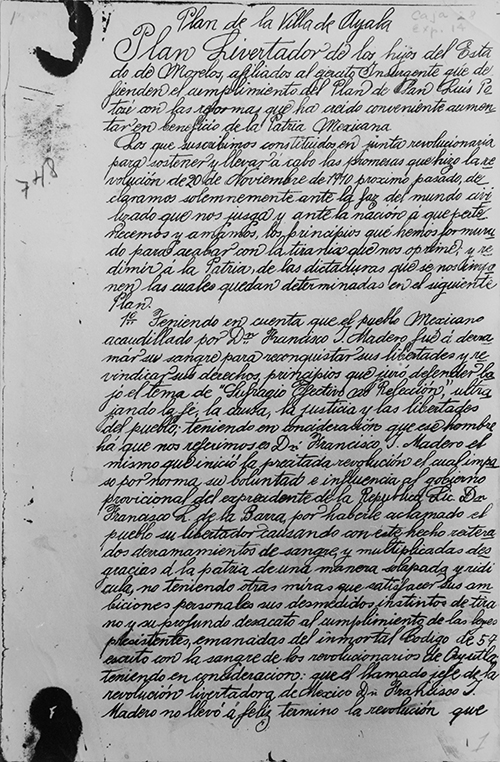 Plan de la Villa de Ayala
Caja 28
exp. 1
748
Plan Livertador de los hijos del Esta
do de Morelos, afiliados al ejército Insurgente que de
fienden el cumplimiento del Plan de San Luis Po
tosí con las reformas que ha creido conveniente aumen
tar en beneficio de la Patria Mexicana.
Los que suscribimos constituidos en junta revolucionaria
para sostener y llevar á cabo las promesas que hizo la re
volución de 20 de Noviembre de 1910 proximo pasado, de
claramos solemnemente ante la faz del mundo civi
lizado que nos jusga y ante la nación á que perte
necemos y amamos, los principios que hemos formura
do para acabar con la tirania que nos oprime, y re
dimir á la Patria, de las dictaduras que se nos impo
nen las cuales quedan determinadas en el siguiente
Plan.
1o. Teniendo en cuenta que el pueblo Mexicano
acaudillado por Dn. Francisco I. Madero fué á derra
mar su sangre para reconquistar sus libertades y re
vindicar sus derechos, principios que juró defender ba
jo el tema de "Sufragio Efectivo No Relección," ultra
jando la fé, la causa, la justicia y las libertades
del pueblo; teniendo en consideración que ese hombre
há que nos referimos es Dn. Francisco I. Madero el
mismo que inició la precitada revolución el cual impu
so por norma, su boluntad e influencia al gobierno
provicional del expresidente de la República, Lic. Dn.
Francisco L. de la Barra, por haberle aclamado el
pueblo su libertador causando con este hecho reitera
dos derramamientos de sangre, y multiplicadas des
gracias á la patria de una manera solapada y ridi
cula, no teniendo otras miras que satisfacer sus am
biciones personales sus desmedidos instintos de tira
no y su profundo desacato al cumplimiento de las leyes
plesistentes, emanadas del inmortal Codigo de 57
escrito con la sangre de los revolucionarios de Ayutla
teniendo en consideracion: que el llamado jefe de la
revolución livertadora de Mexico Dn. Francisco I.
Madero no llevó á feliz termino la revolución que